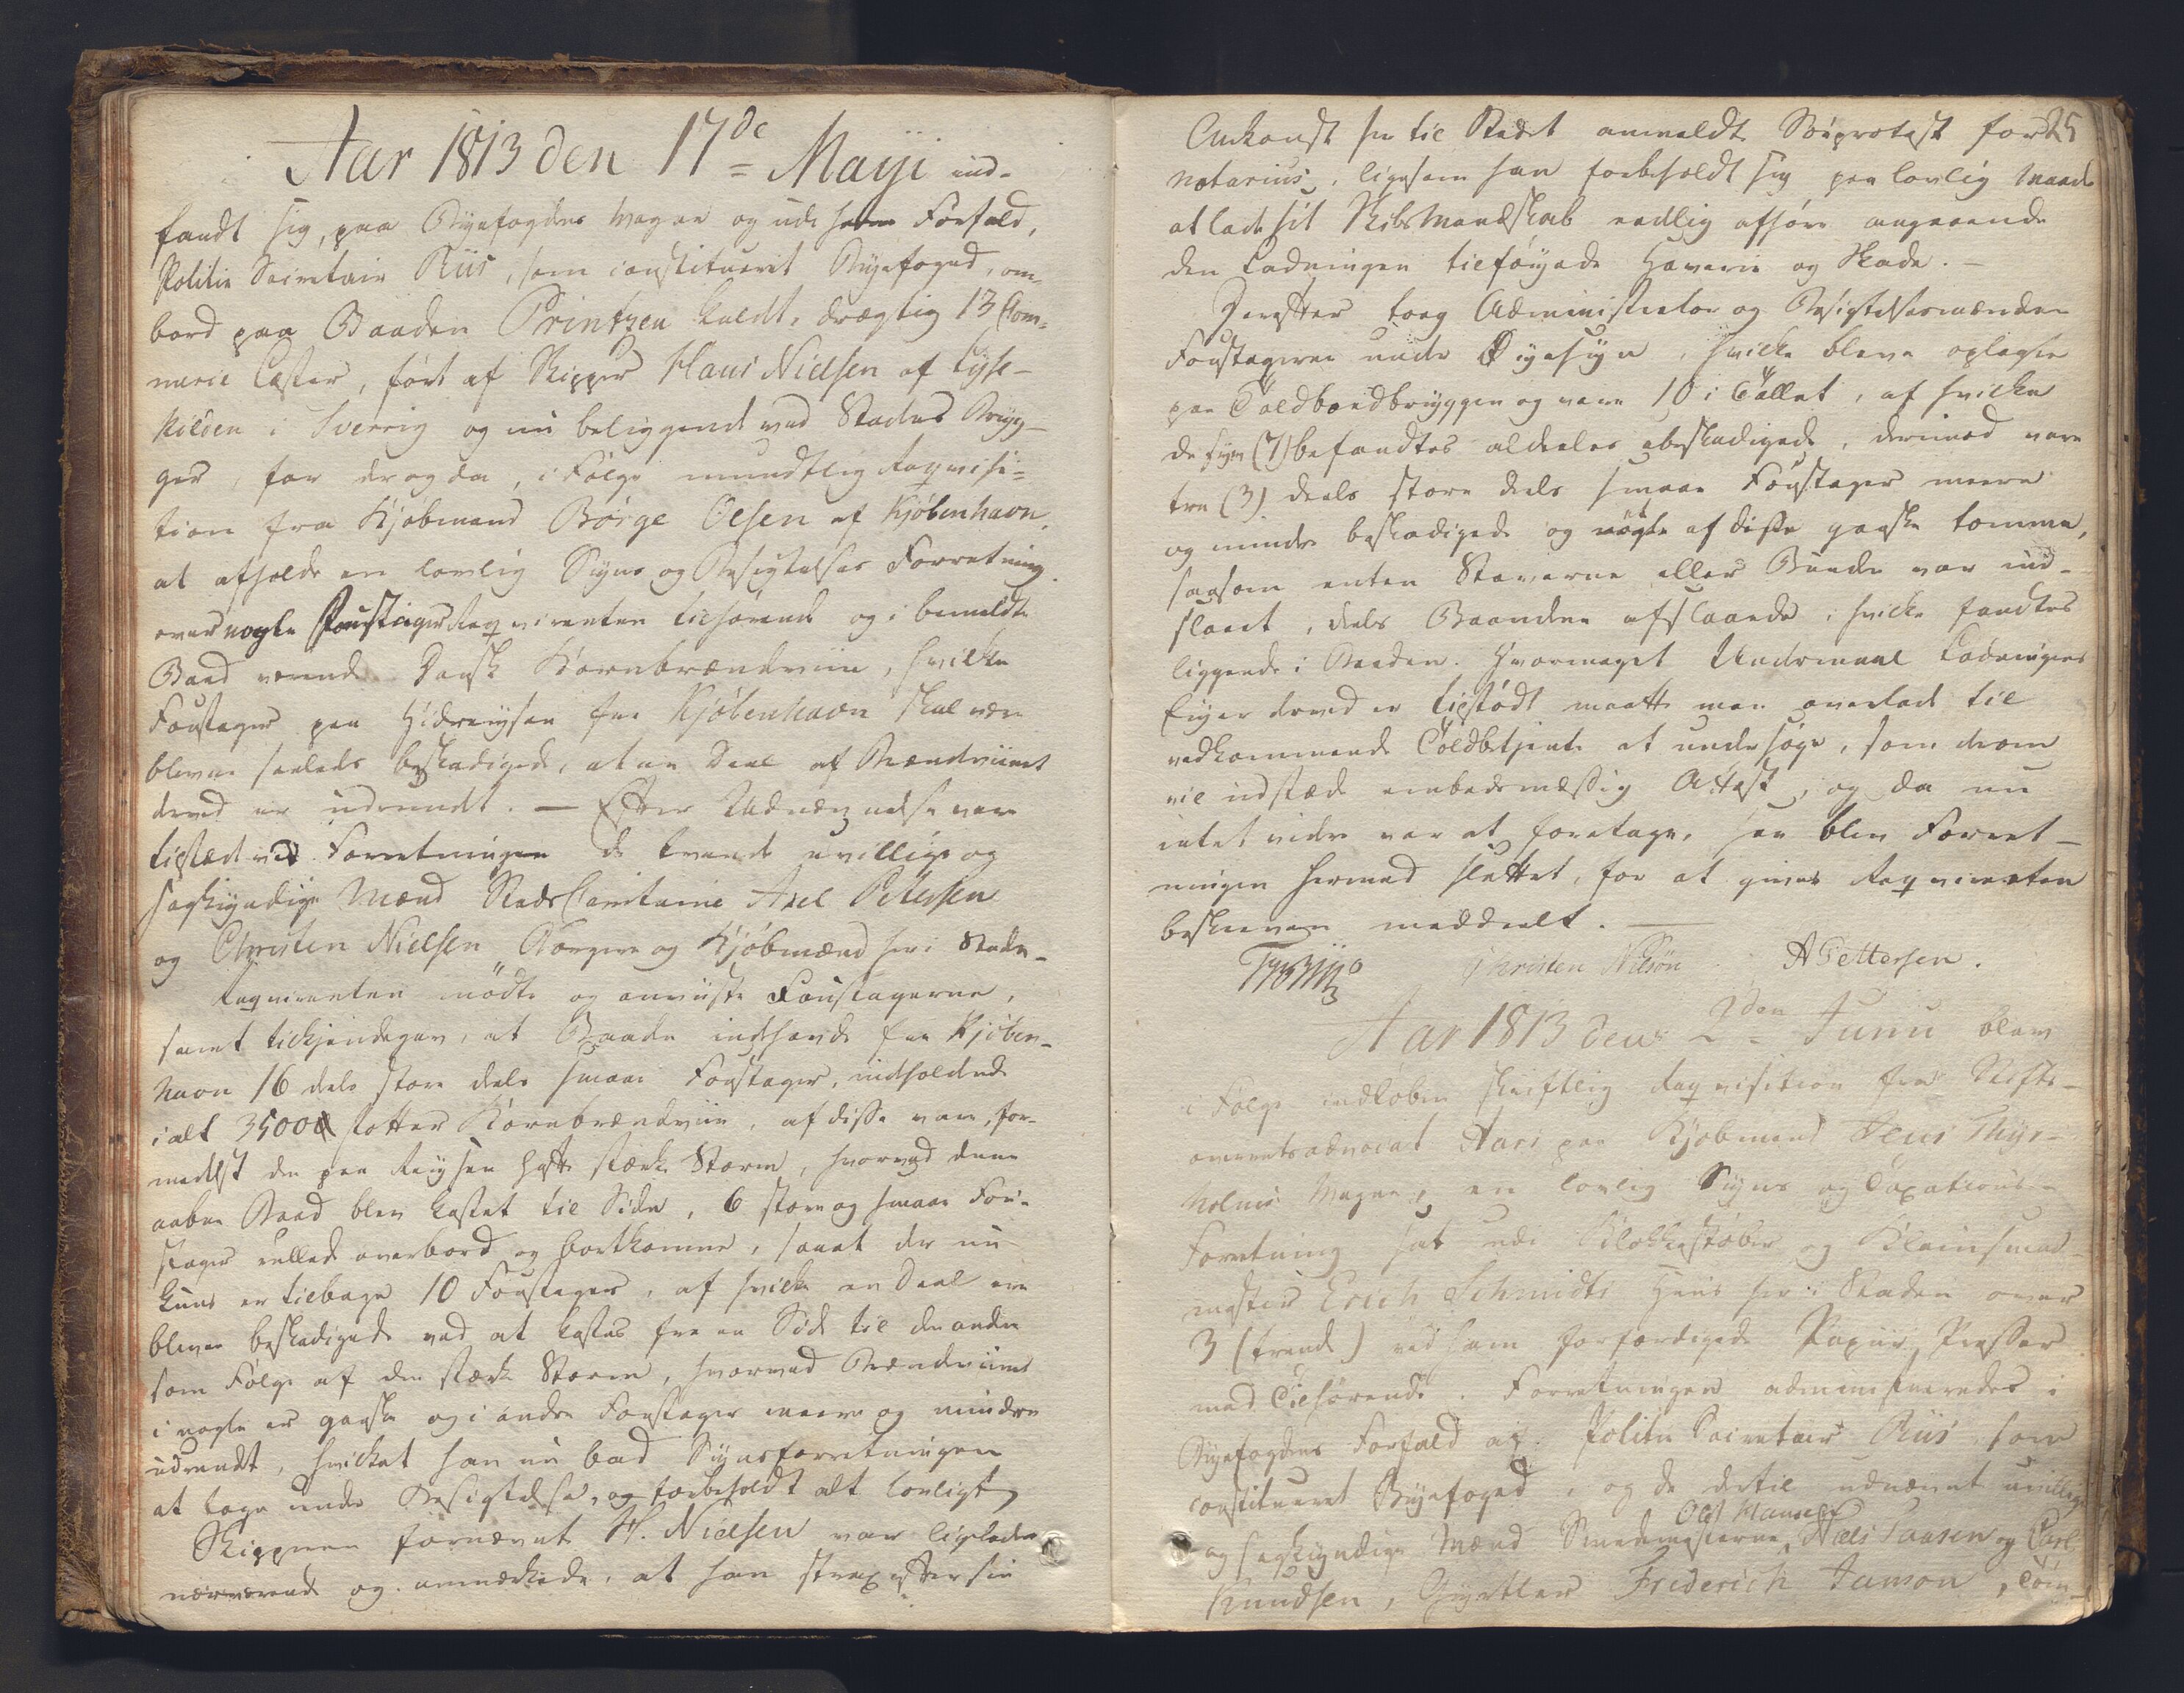 Aar 1813 den 17de Maÿi ind-
fandt sig, paa Byefogdens Vegne og udi hans Forfald,
Politie Secretair Riis, som constitueret Byefoged, om-
bord paa Baaden Printzen kaldt, drægtig 13 Com-
mercie Læster, ført af Skipper Hans Nielsen af Lyse-
kilden i Sverrig og nu beliggende ved Stadens Bryg-
ger, for der og da, i Følge mundtlig Reqvisi-
tion fra Kjøbmand Børge Olsen af Kjøbenhavn,
at afholde en lovlig Syns og Besigtelses Forretning
over nogle Foustager Reqvirenten tilhørende og i bemeldte
Baad værende Dansk Kornbrændeviin, hvilke
Foustager paa Hidreysen fra Kjøbenhavn skal være
blevne saaledes beskadigede, at en Deel af Brændeviinet
derved er udrendt. — Efter Udnævnelse vare
tilstæde ved Forretningen de tvende uvillige og
sagkyndige Mænd Stads Capitaine Axel Petersen
og Christen Nielsen Borgere og Kjøbmænd her i Staden-
Reqvirenten mødte og anviiste Foustagerne,
samt tilkjendegav, at Baaden indhavde fra Kjøben-
havn 16 deels store deels smaae Foustager, indholdende
i alt 3500 Potter Kornbrændeviin, af disse vare, for-
medelst den paa Reysen hafte stærke Storm, hvorved denne
aabne Baad blev kastet til Side, 6 store og smaae Fou-
stager rullede overbord og bortkomne, saaat der nu
kuns er tilbage 10 Foustager, af hvilke en Deel ere
blevne beskadigede ved at kastes fra en Side til den anden
som Følge af den stærke Storm, hvorved Brændeviinet
i nogle er ganske og i andre Foustager meere og mindre
udrendt, hvilket han nu bad Synsforretningen
at tage under Besigtelse, og forbeholdt alt lovligt
Skipperen fornævnt H. Nielsen var ligeledes
nærværende og anmærkede, at han strax efter sin
25
Ankomst her til Stedet anmeldte Søeprotest for
Notarius, ligesom han forbeholdt sig paa lovlig Maade
at lade sit Skibs Mandskab eedlig afhøre angaaende
den Ladningen tilføyede Haverie og Skade. —
Derefter toeg Administrator og Besigtelsesmændene
Foustagerne under Øyesyn, hvilke bleve oplagte
paa Toldbodbryggen og vare 10 i Tallet, af hvilke
de syv (7) befandtes aldeeles ubeskadigede, derimod vare
tre (3) deels store deels smaae Foustager meere
og mindre beskadigede og nogle af disse ganske tomme,
saasom enten Staverne eller Bunden var ind-
slaaet, deels Baandene afslaaede, hvilke fandtes
liggende i Baaden. Hvormeget Undermaal Ladningens
Eyer derved er tilstødt maatte man overlade til
vedkommende Toldbetjente at undersøge, som derom
vil udstæde embedsmæssig Attest, og da nu
intet videre var at foretage, saa blev Forret-
ningen hermed sluttet, for at gives Reqvirenten
beskreven meddeelt. —
Christen Nilsøn A Pettersen.
Aar 1813 den 2den Junii blev
i Følge indløben skriftlig Reqvisition fra Stifts-
overretsadvocat Aars paa Kjøbmand Jens Thyr-
holms Vegne, en lovlig Syns og Taxations
Forretning sat udi Klokkestøber og Kleinsmed-
mester Erich Schmidts Huus her i Staden over
3 (trende) ved ham forfærdigede Papiir Presser
med Tilhørende. Forretningen administreredes i
Byefogdens Forfald af Politie Secretair Riis som
constitueret Byefoged, og de dertil udnævnte uvillige
og sagkyndige Mænd Smedemesterne Niels Paasen og Carl
Knudsen, Gjørtler Friderich Janson, Tøm-